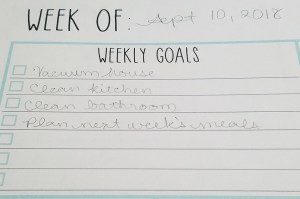 WEEK OF: Sept 10, 2018
WEEKLY GOALS
Vacuum house
Clean kitchen
Clean bathroom
Plan next week's meals